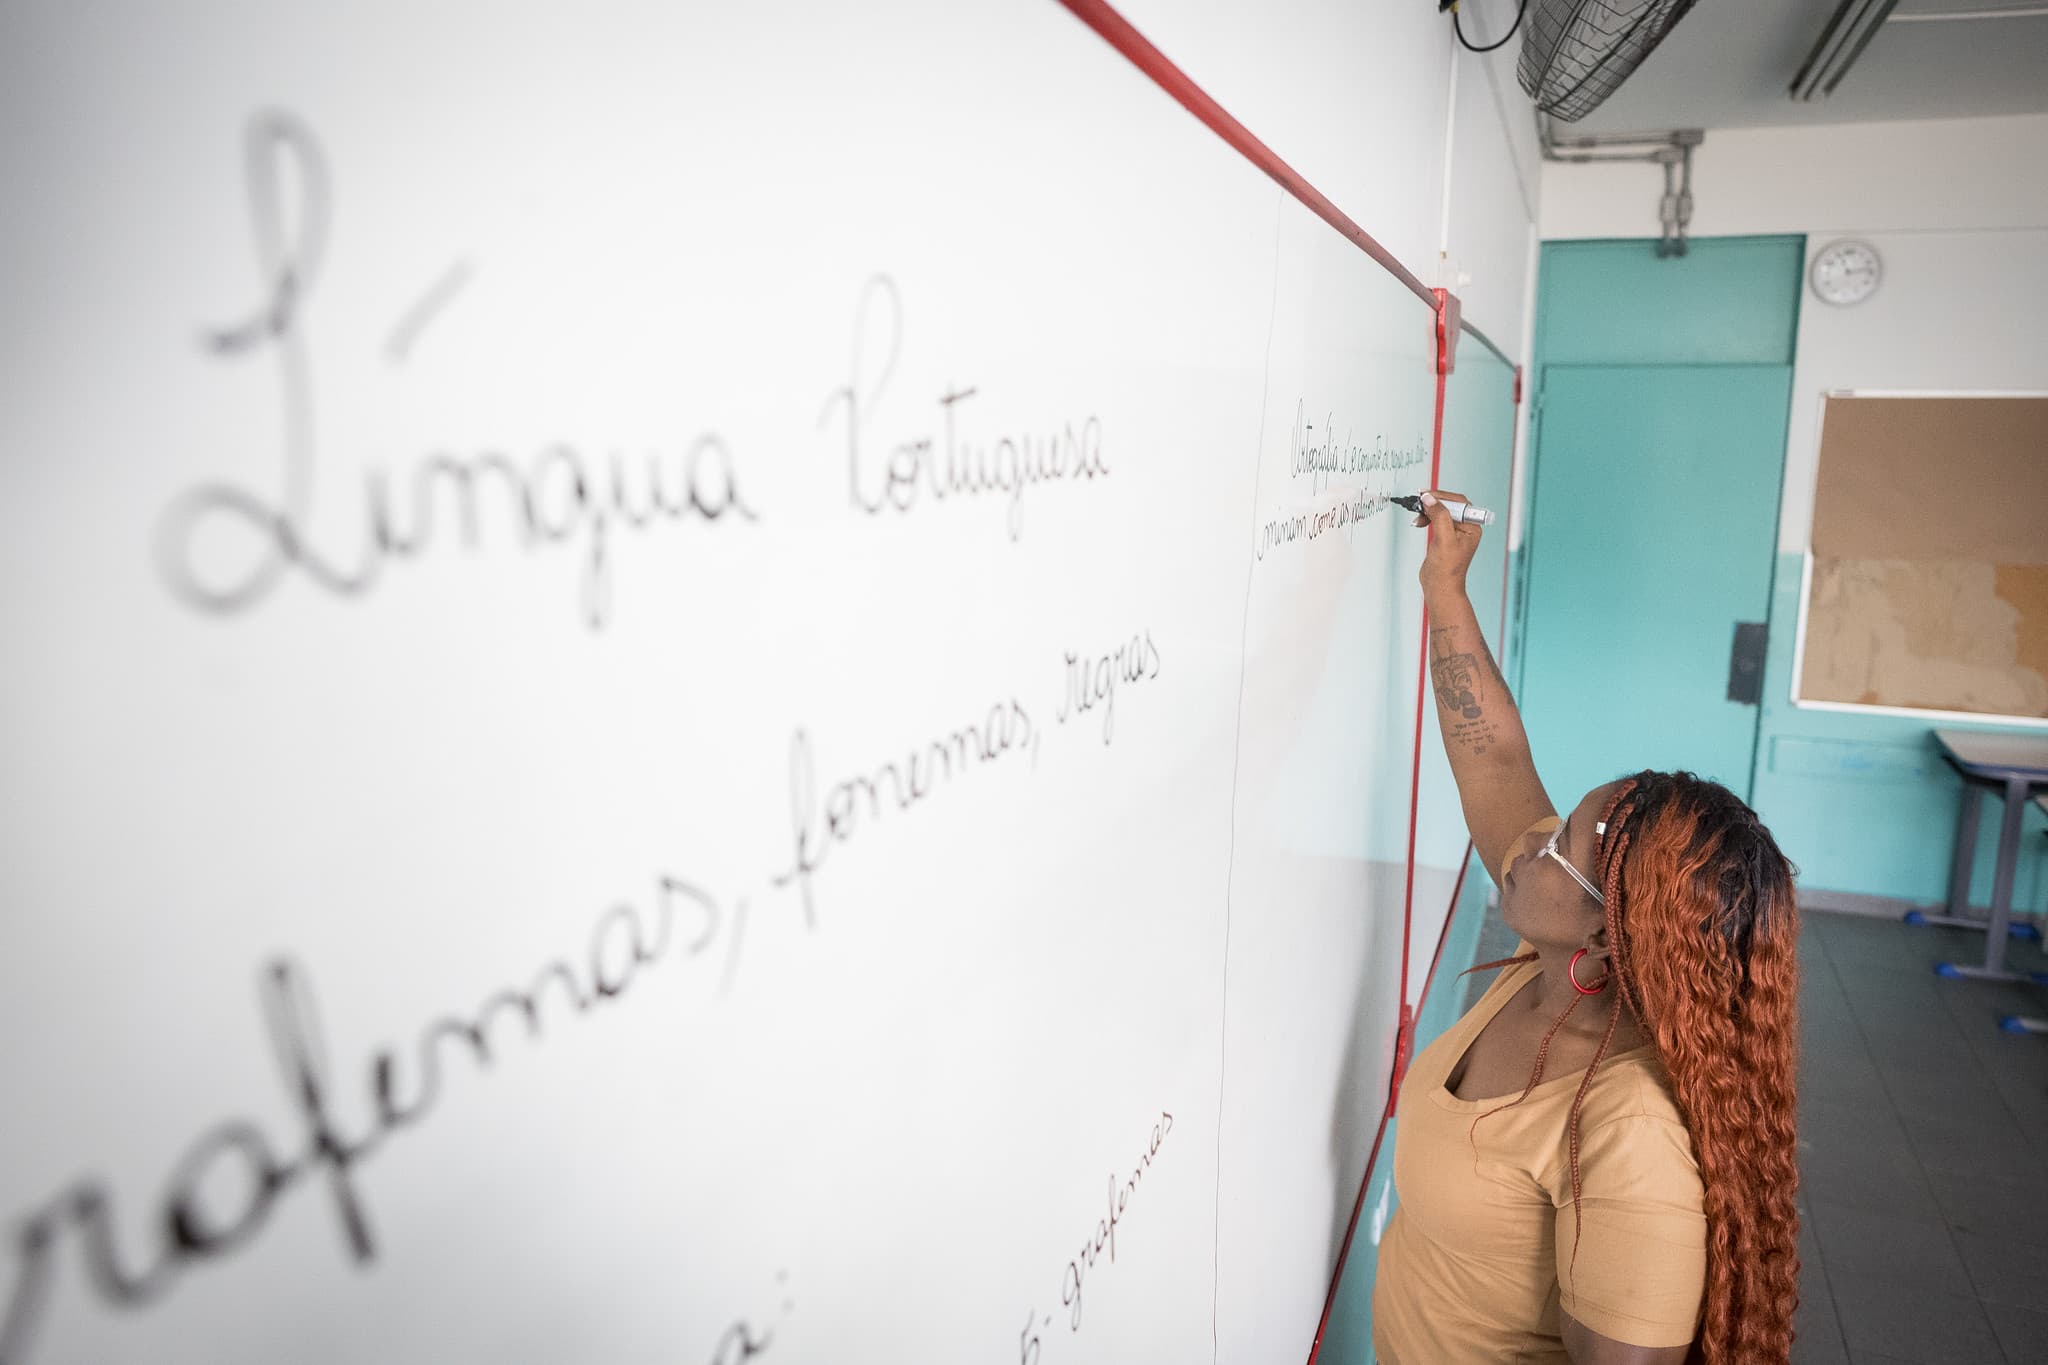 Língua Portuguesa
grafemas, fonemas, regras
5- grafemas
Ortografia é o conjunto de regras que deter-
minam como as palavras